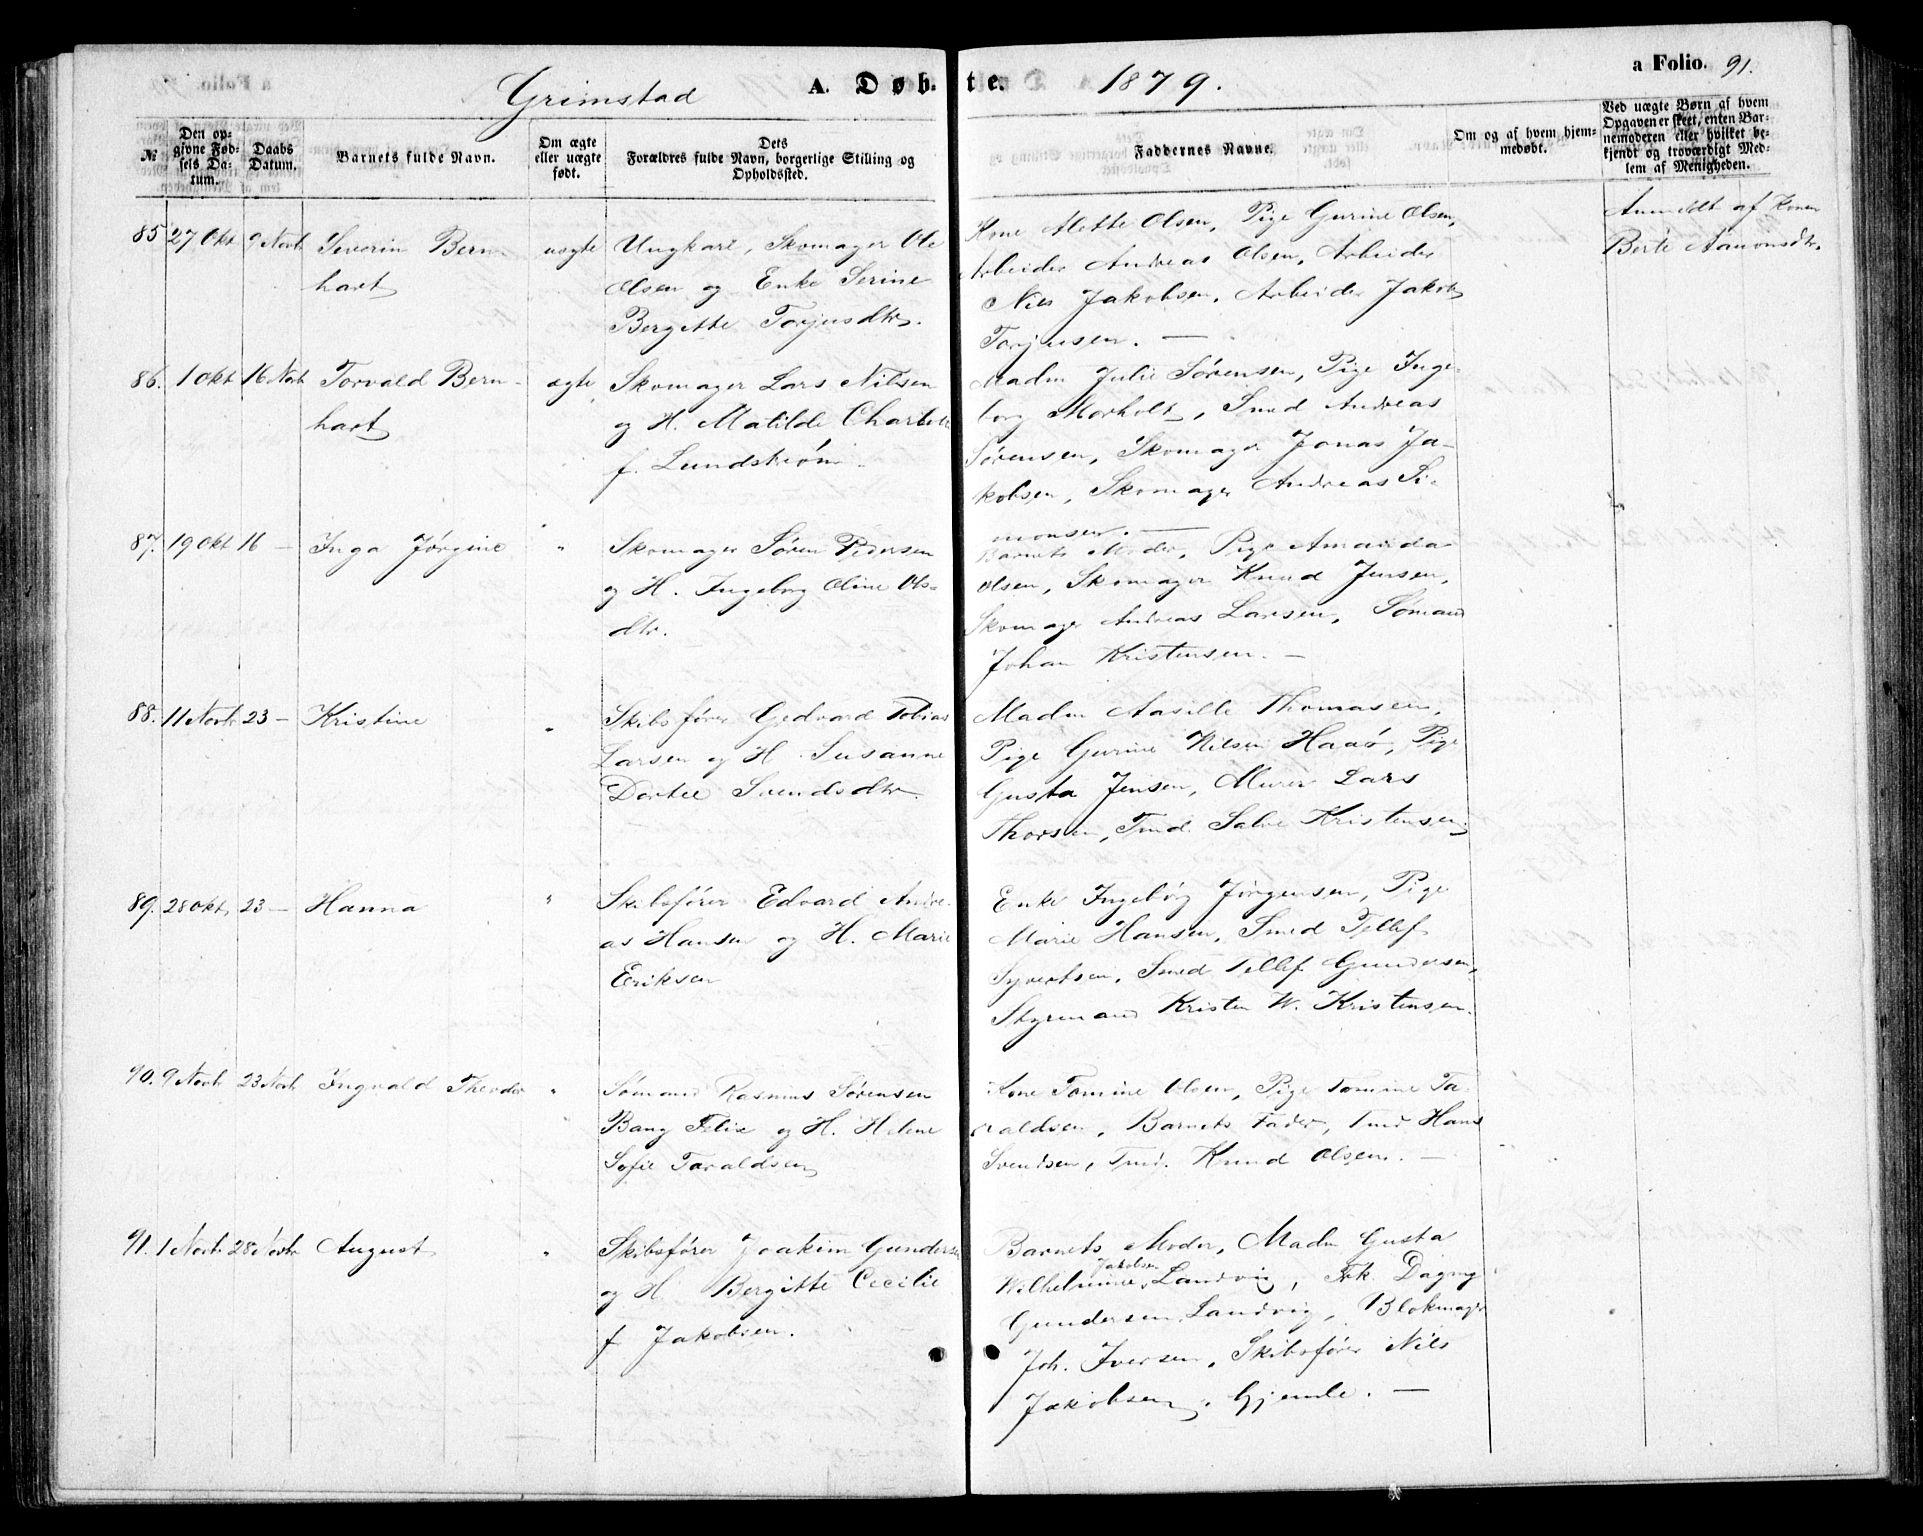 Grimstad A. Døb- te. 1879. a Folio. 91.
№ Den opgivne Fødsels Datum. Daabs Datum. Barnets fulde Navn. Om ægte eller uægte født. Dets Forældres fulde Navn, borgerlige Stilling og Opholdssted. Faddernes Navne. Om og af hvem hjemmedøbt. Ved uægte Børn af hvem Opgaven er skeet, enten Barnemoderen eller hvilket bekjendt og troværdigt Medlem af Menigheden.
85 27 Okt 9 Novb Severin Bern- uægte Ungkarl, Skomager Ole Kone Mette Olsen, Pige Gurine Olsen, Anmeldt af Konen
hart Olsen og Enke Serine Arbeider Andreas Olsen, Arbeider Berte Aanonsdtr.
Bergitte Torjusdtr. Nils Jakobsen, Arbeider Jakob
Torjusen. —
86. 1 Okt 16 Novb Torvald Bern- ægte Skomager Lars Nilsen Madm Julie Sørensen, Pige Inge-
hart og H. Matilde Charlotte borg Morholt, Smed Andreas
f. Lundstrøm. Sørensen, Skomager Jonas Ja-
kobsen, Skomager Andreas Si-
monsen. —
87. 19 Okt 16 — Inga Jørgine " Skomager Søren Pedersen Barnets Moder, Pige Amanda
og H. Ingeborg Oline Ols- Olsen, Skomager Knud Jensen,
dtr. Skomager Andreas Larsen, Sømand
Johan Kristensen. —
88. 11 Novb 23 — Kristine " Skibsfører Gedvard Tobias Madm Aasille Thomasen,
Larsen og H. Susanne Pige Gurine Nilsen Haaø, Pige
Dortee Svendsdtr. Gusta Jensen, Murer Lars
Thorsen, Tmd. Salve Kristensen.
89. 28 Okt. 23 — Hanna " Skibsfører Edvard Andre- Enke Ingebørg Jørgensen, Pige
as Hansen og H. Marie Marie Hansen, Smed Tellef
Eriksen Syvertsen, Smed Tellef Gundersen,
Styrmand Kristen W. Kristensen.
90. 9 Novb 23 Novb Ingvald Theodor " Sømand Rasmus Sørensen Kone Tomine Olsen, Pige Tomine Ta-
Bang Felix og H. Helene raldsen, Barnets Fader, Tmd Hans
Sofie Taraldsen Svendsen, Tmd. Knud Olsen. —
91. 1 Novb 28 Novb August " Skibsfører Joakim Gundersen Barnets Moder, Madm Gusta
og H. Bergitte Cecilie Wilhelmine Jakobsen Landvig, Frk. Dagny
f. Jakobsen. Gundersen Landvig, Blokmager
Joh. Iversen, Skibsfører Nils
Jakobsen, Gjemle. —